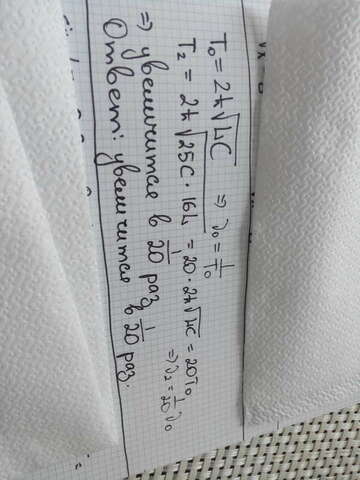 T₀ = 2π√LC ⇒ ν₀ = 1/T₀
T₂ = 2π√25C · 16L = 20 · 2π√LC = 20T₀
⇒ ν₂ = 1/20 ν₀
⇒ увеличится в 1/20 раз
Ответ: увеличится в 1/20 раз.